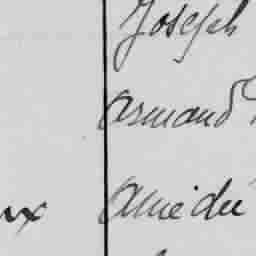 Joseph
Armand
ux Amédée